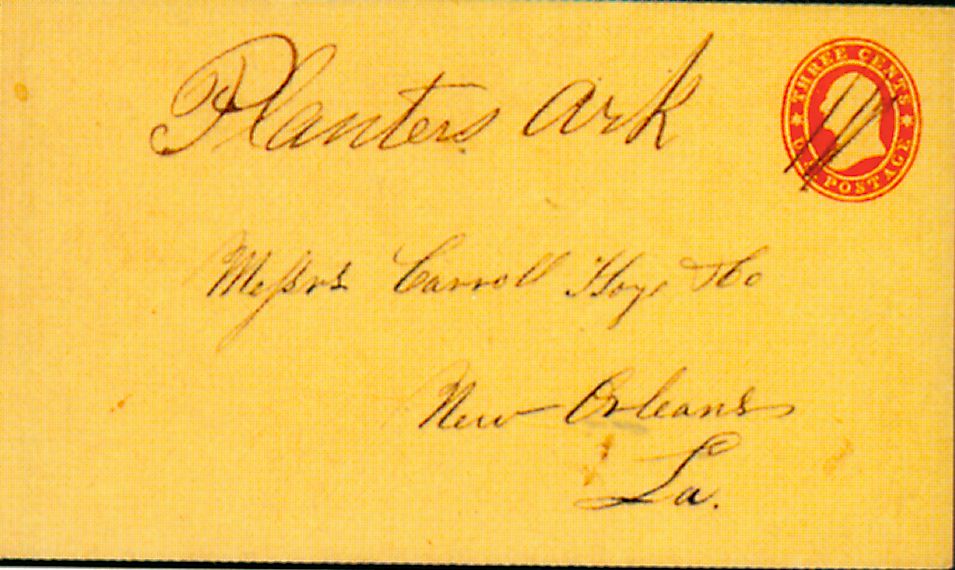 Planters Ark
THREE CENTS
U.S. POSTAGE
Messrs Carroll Hoy & Co
New Orleans
La.